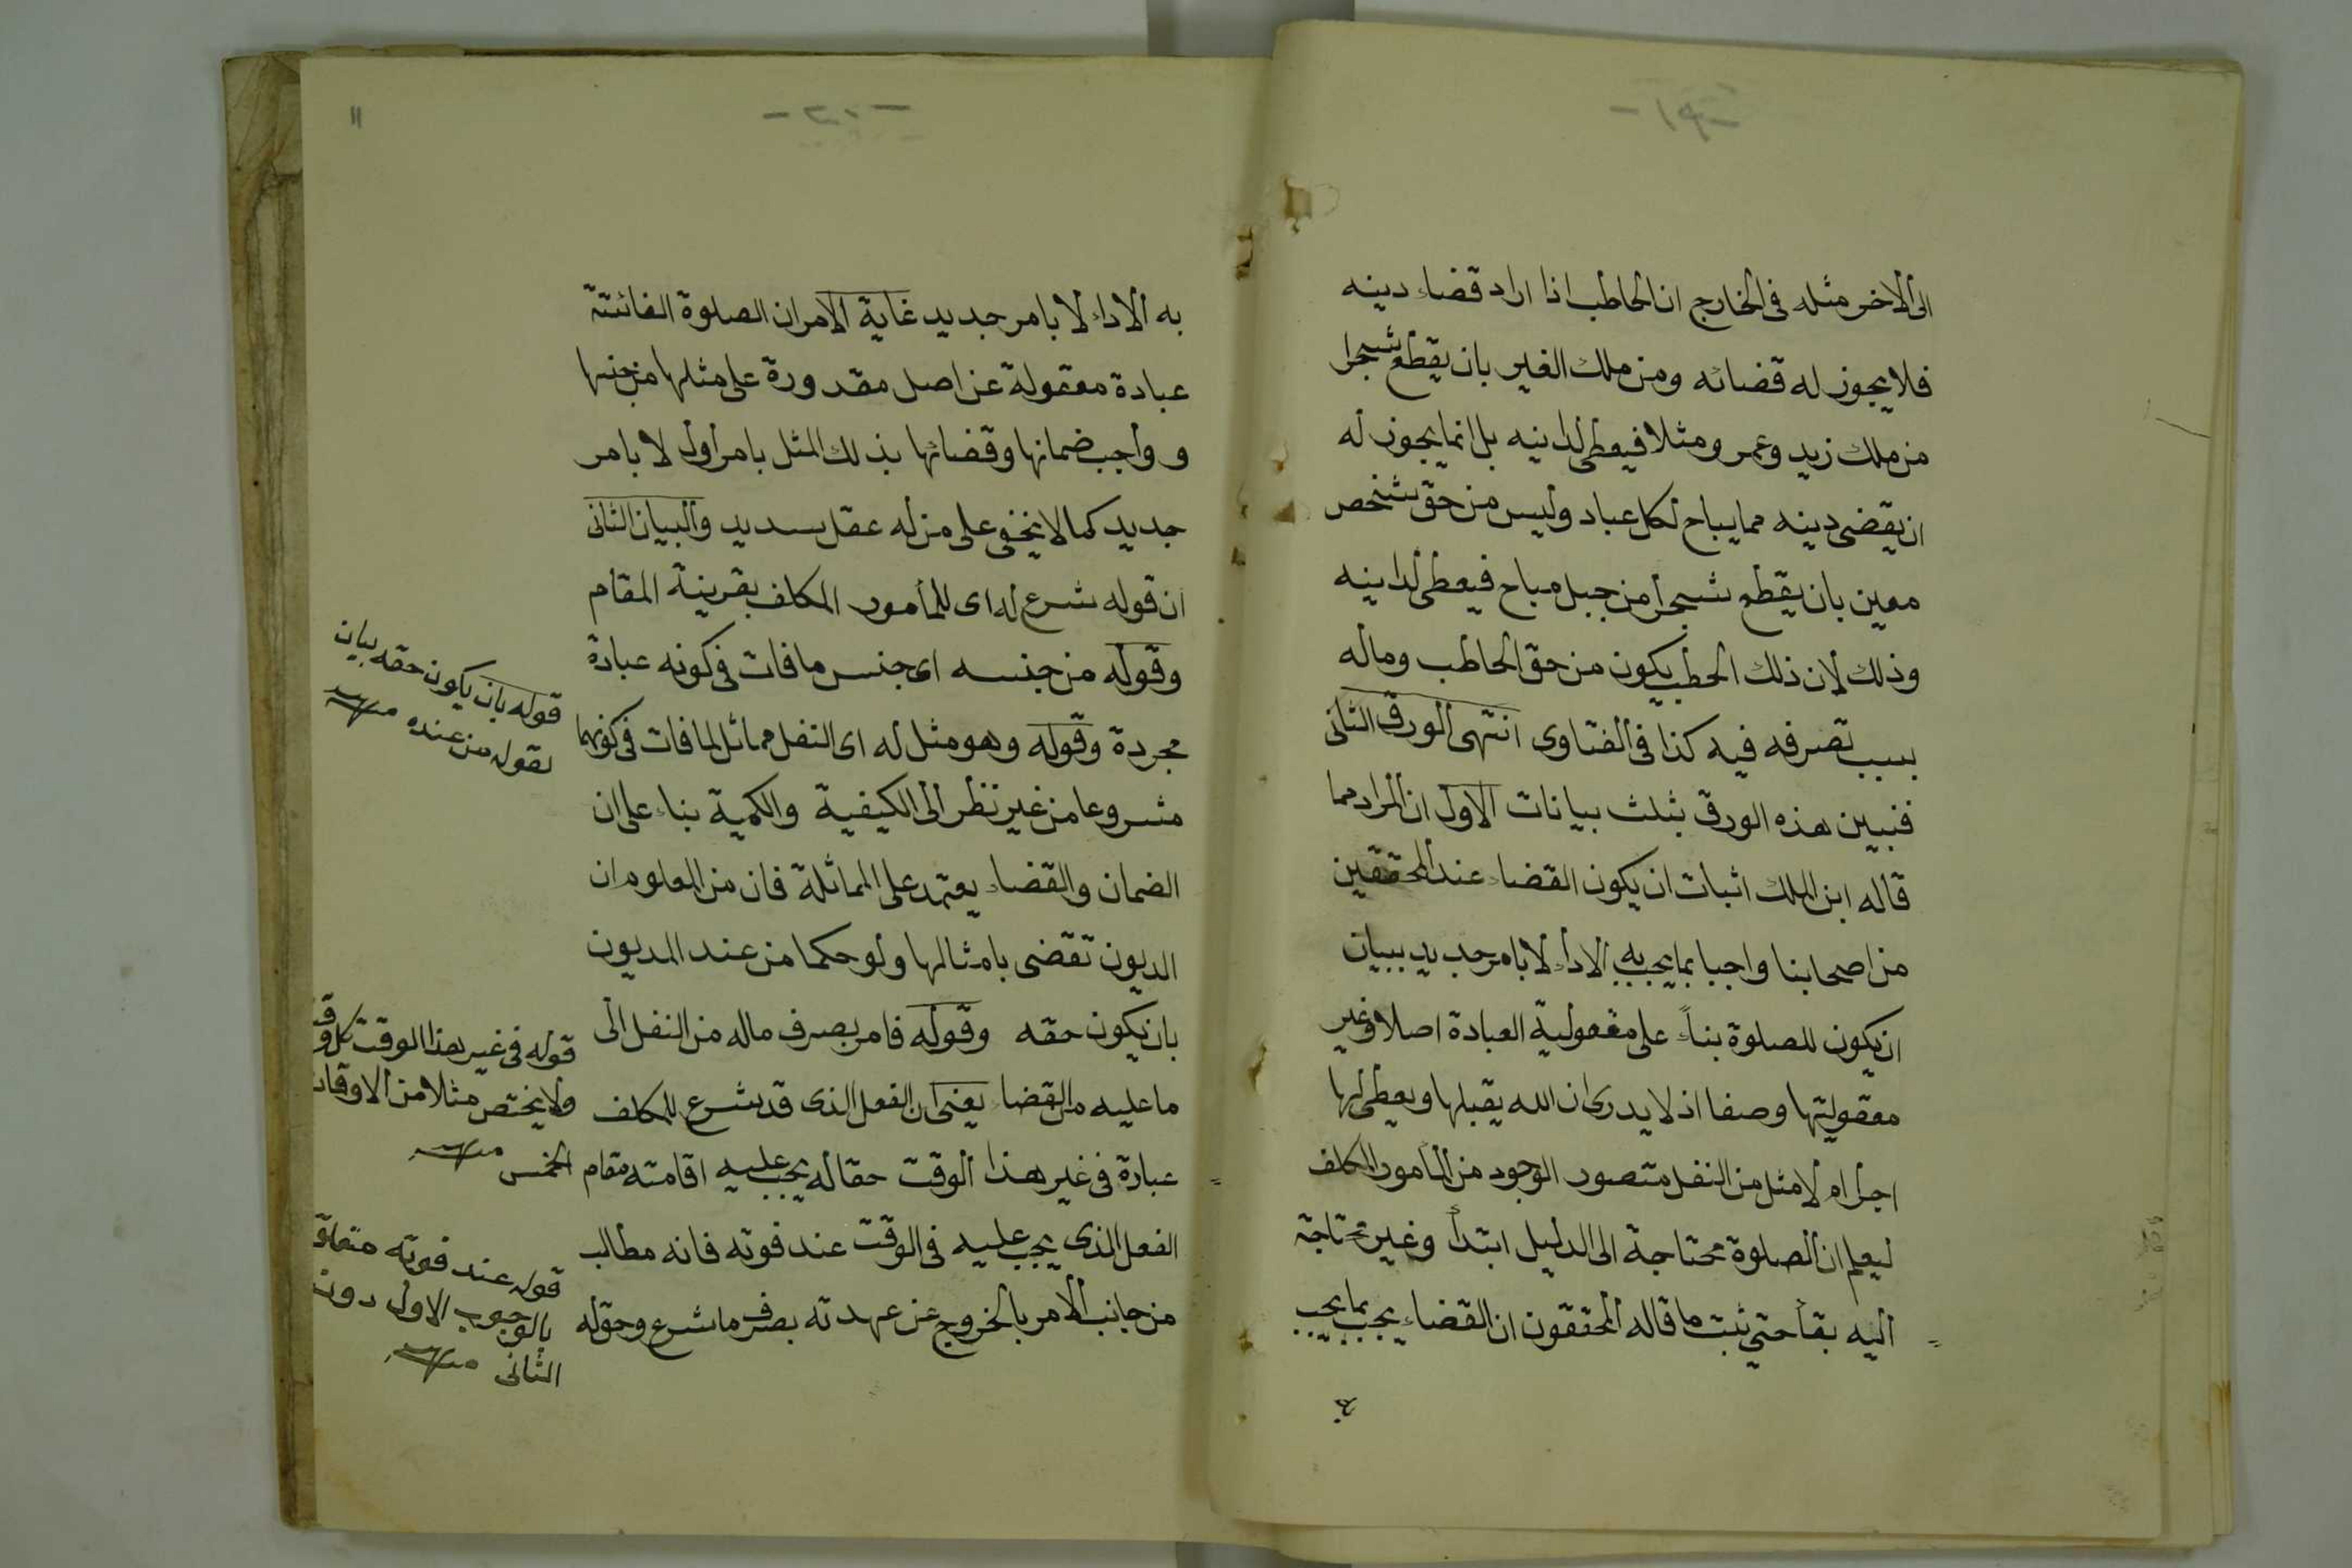 الى الاخر مثله فى الخارج ان الحاطب اذا اراد قضاء دينه
فلا يجوز له قضائه ومن ملك الغير بان يقطع شجرا
من ملك زيد وعمرو مثلا فيعطى لداينه بل انما يجوز له
ان يقضى دينه مما يباح لكل عباد وليس من حق شخص
معين بان يقطع شجرا من جبل مباح فيعطى لداينه
وذلك لان ذلك الحطب يكون من حق الحاطب وماله
بسبب تصرفه فيه كذا فى الفتاوى انتهى الورق الثانى
فنبين هذه الورق بثلث بيانات الاول ان المراد مما
قاله ابن الملك اثبات ان يكون القضاء عند المحققين
من اصحابنا واجبا بما يجب به الاداء لا بامر جديد ببيان
ان يكون للصلوة بناءً على مفعولية العبادة اصلا وغير
معقوليتها وصفا اذ لا يدرى ان الله يقبلها ويعطى لها
اجرا ام لا مثل من النفل متصور الوجود من المأمور المكلف
ليعلم ان الصلوة محتاجة الى الدليل ابتدأ وغير محتاجة
اليه بقأ حتى ثبت ما قاله المحققون ان القضاء يجب بما يجب
به الاداء لا بامر جديد غاية الامر ان الصلوة الفائتة
عبادة معقولة عن اصل مقدورة على مثلها من جنسها
و واجب ضمانها وقضائها بذلك المثل بامر اول لا بامر
جديد كما لا يخفى على من له عقل سديد والبيان الثانى
ان قوله شرع له اى للمأمور المكلف بقرينة المقام
وقوله من جنسه اى جنس ما فات فى كونه عبادة
مجردة وقوله وهو مثل له اى النفل مماثل لما فات فى كونهما
مشروعا من غير نظر الى الكيفية والكمية بناء على ان
الضمان والقضاء يعتمد على المماثلة فان من المعلوم ان
الديون تقضى بامثالها ولو حكما من عند المديون
بان يكون حقه وقوله فامر بصرف ماله من النفل الى
ما عليه من القضاء يعنى ان الفعل الذى قد شرع للمكلف
عبادة فى غير هذا الوقت حقا له يجب عليه اقامته مقام
الفعل الذى يجب عليه فى الوقت عند فوته فانه مطالب
من جانب الامر بالخروج عن عهدته بصرف ما شرع وحقوله
قوله بان يكون حقه بيان
لقوله من عنده منه
قوله فى غير هذا الوقت كل وقت
ولا يختص مثلا من الاوقات
الخمس منه
قوله عند فوته متعلق
بالوجوب الاول دون
الثانى منه